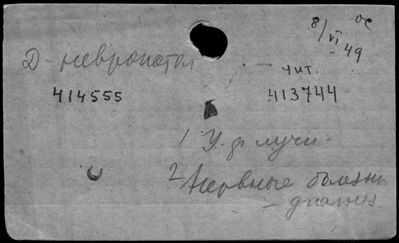 8/VI-49 ос
Д-невропатол
чит.
414555 413744
1 У.ф лучи
2 Нервные болезни
- диагноз